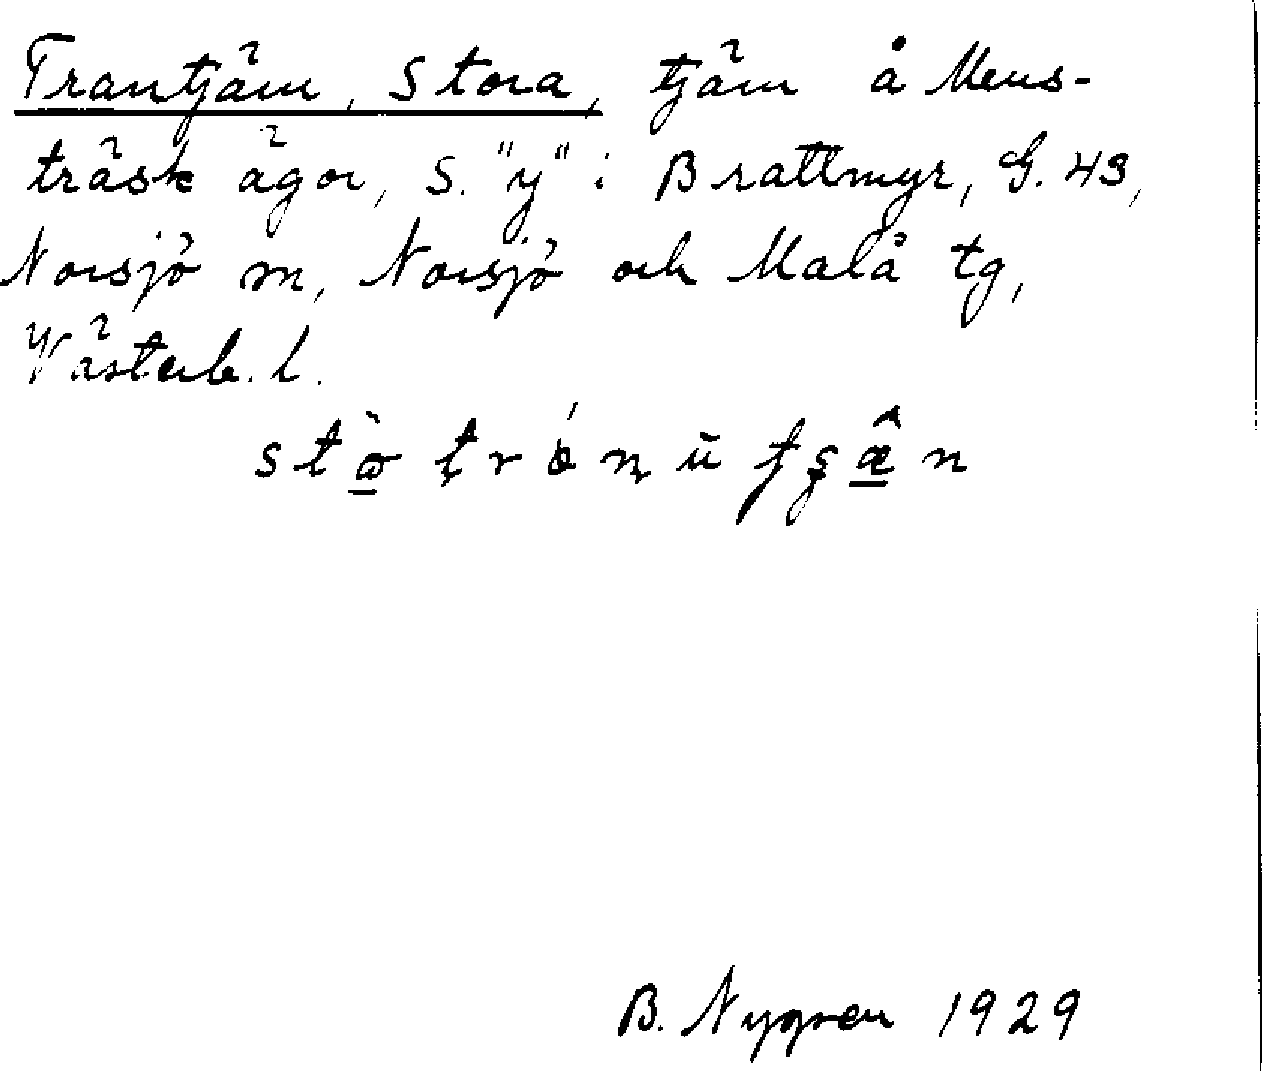 Trantjärn, Stora, tjärn å Mens-
träsk ägor, S. "y" i Brattmyr, G. 43,
Norsjö sn, Norsjö och Malå tg,
Västerb. l.
B. Nygren 1929